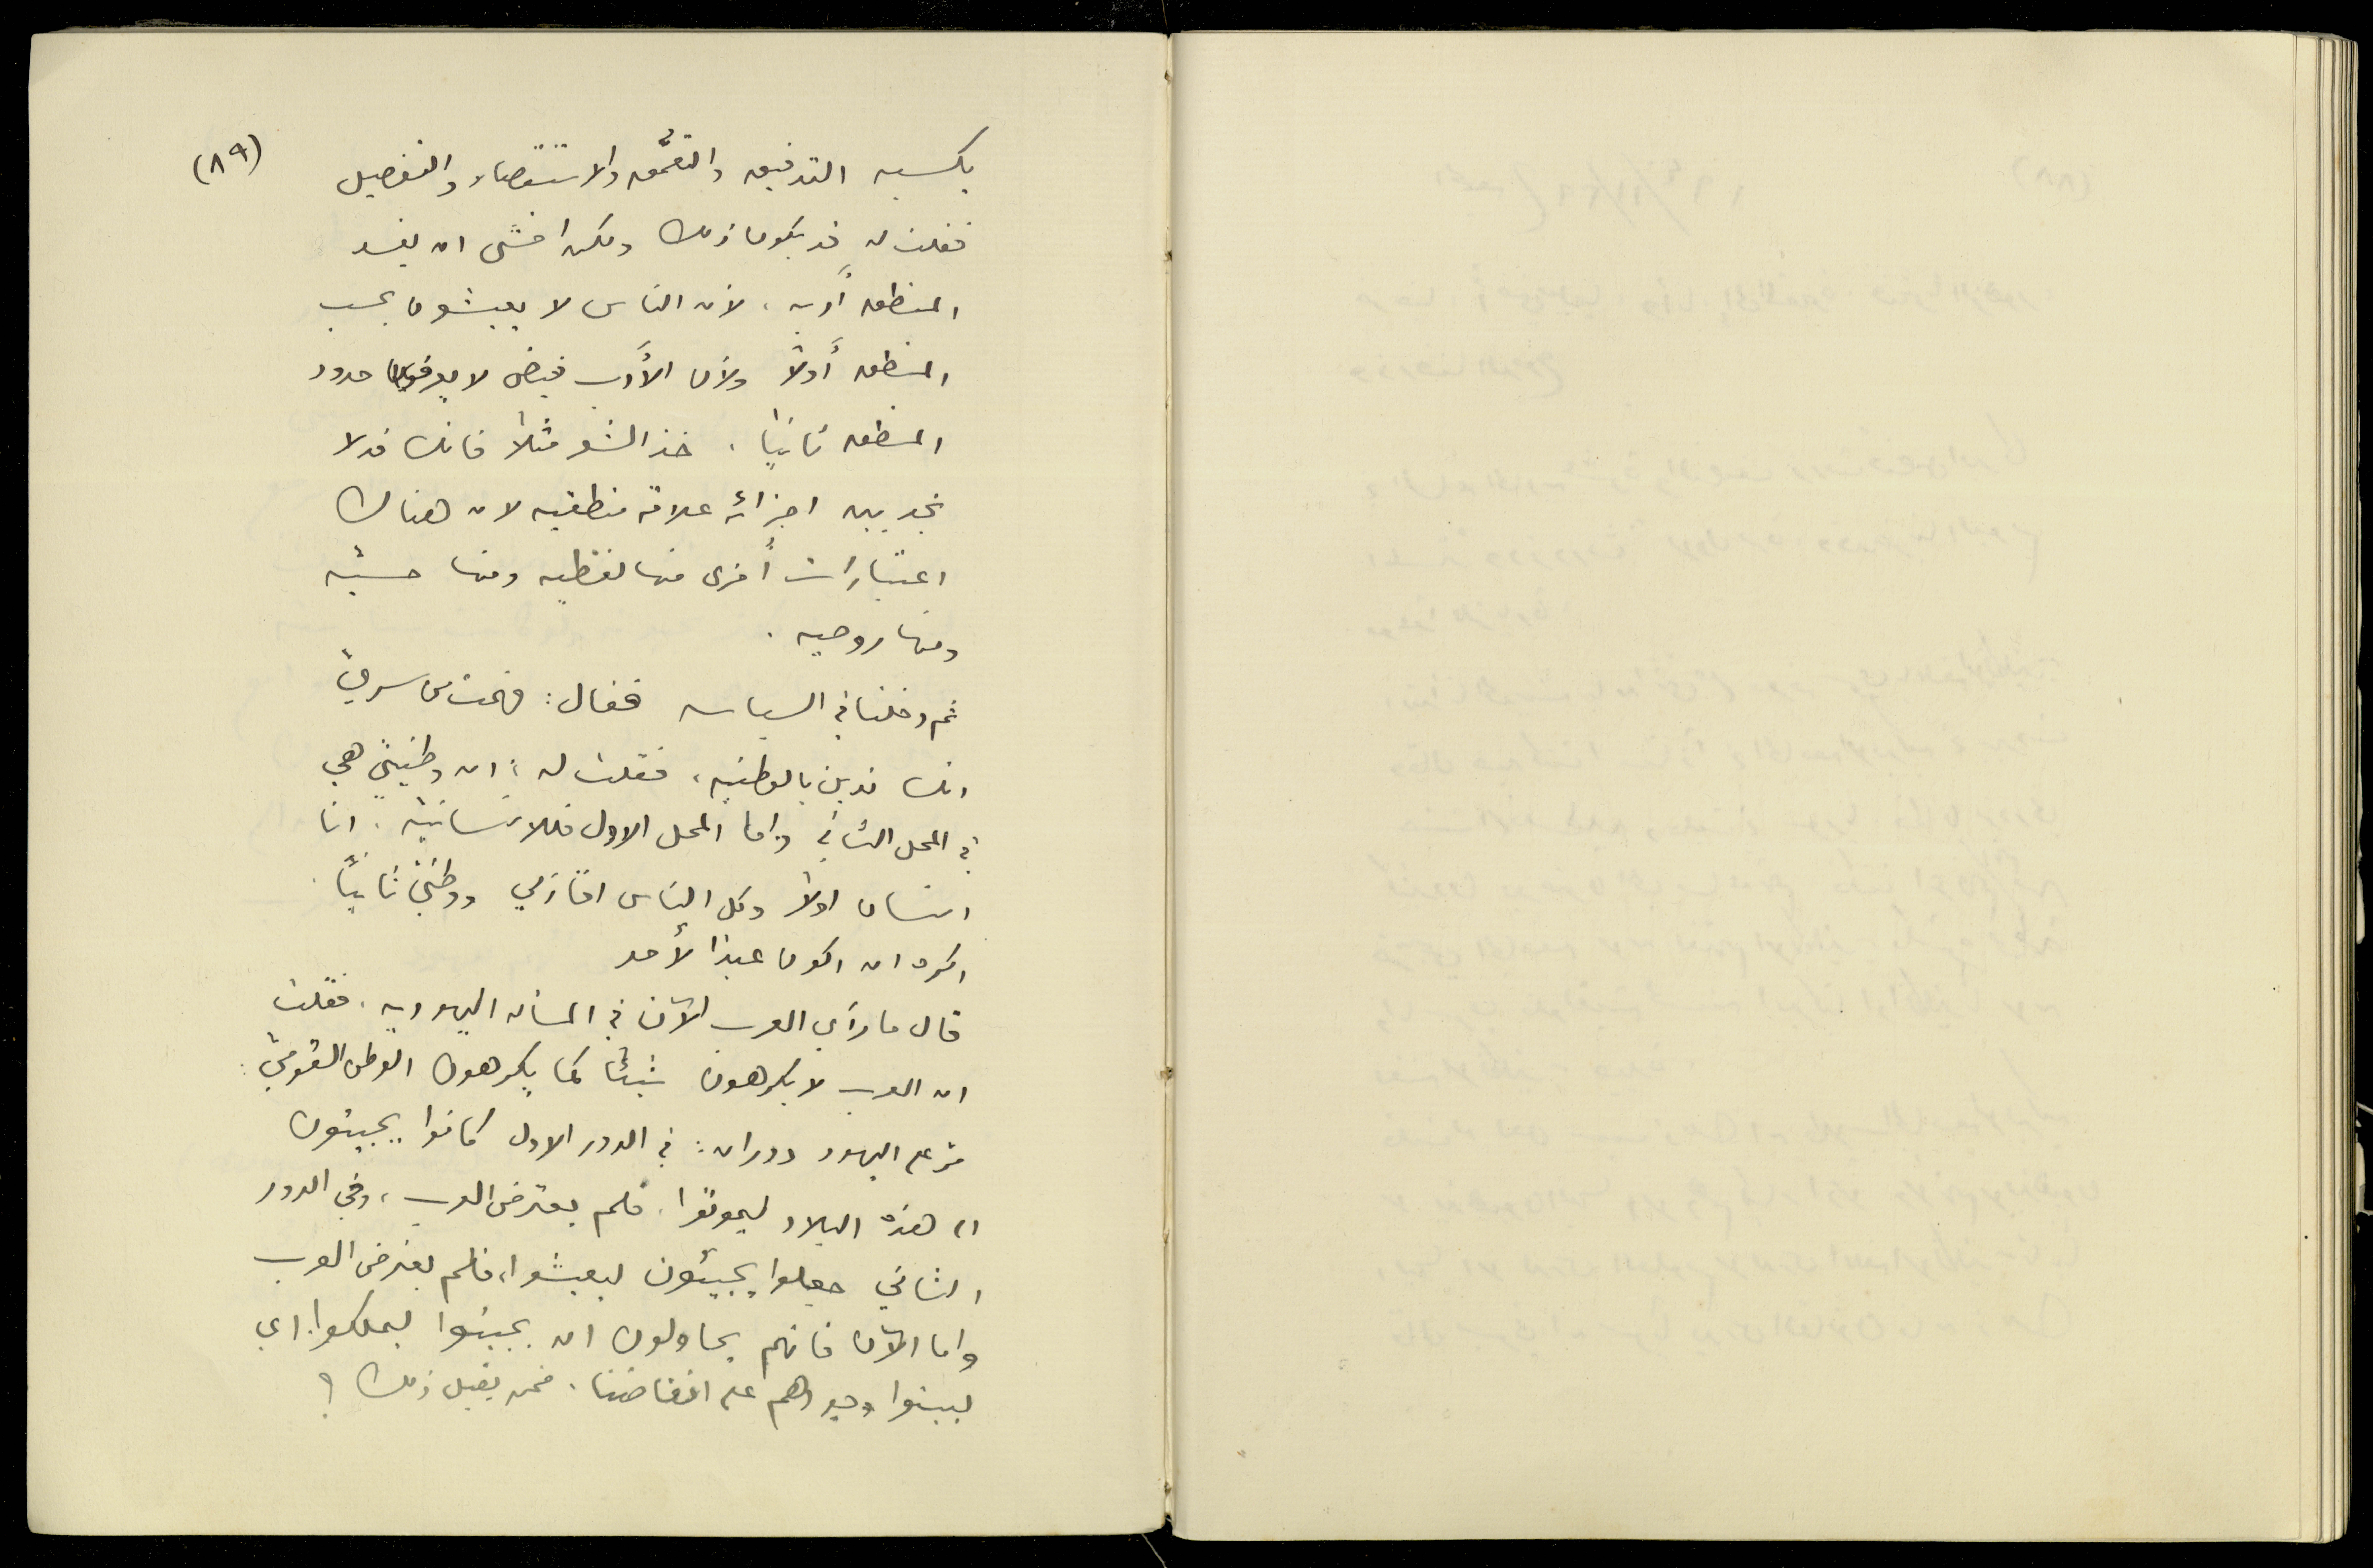 (٨٩)
يكسبه التدقيق والتعمُّق والاستقصاء والتفصيل
فقلت له قد يكون ذلك ولكن اخشى ان يفسد
المنطق أدبه، لأن الناس لا يعيشون بحسب
المنطق أولاً ولأن الأدب فيض لا يعرف حدود
المنطق ثانيًا. خذ الشعر مثلاً فانك قد لا
تجد بين اجزائه علاقة منطقيه لان هناك
اعتبارات أخرى منها لفظيه ومنها حسيّه
ومنها روحيه.
ثم دخلنا في السياسه فقال: فهمت من سريّ
انك تدين بالوطنيه، فقلت له: ان وطنيتي هي
في المحل الثاني واما المحل الاول فللانسانيّه. انا
انسان اولاً وكل الناس اخواني ووطنيّ ثانيًا.
اكره ان اكون عبدًا لأحد
قال ما رأي العرب الآن في المسأله اليهوديه. فقلت
ان العرب لا يكرهون شيئًا كما يكرهون الوطن القوميّ:
مرّ على اليهود دوران: في الدور الاول كانوا يجيئون
الى هذه البلاد ليموتوا. فلم يعترض العرب، وفي الدور
الثاني جعلوا يجيئون ليعيشوا، فلم يعترض العرب
واما الآن فانهم يحاولون ان يجيئوا ليملكوا. اي
ليبنوا وجودهم على انقاضنا. فمن يقبل ذلك؟